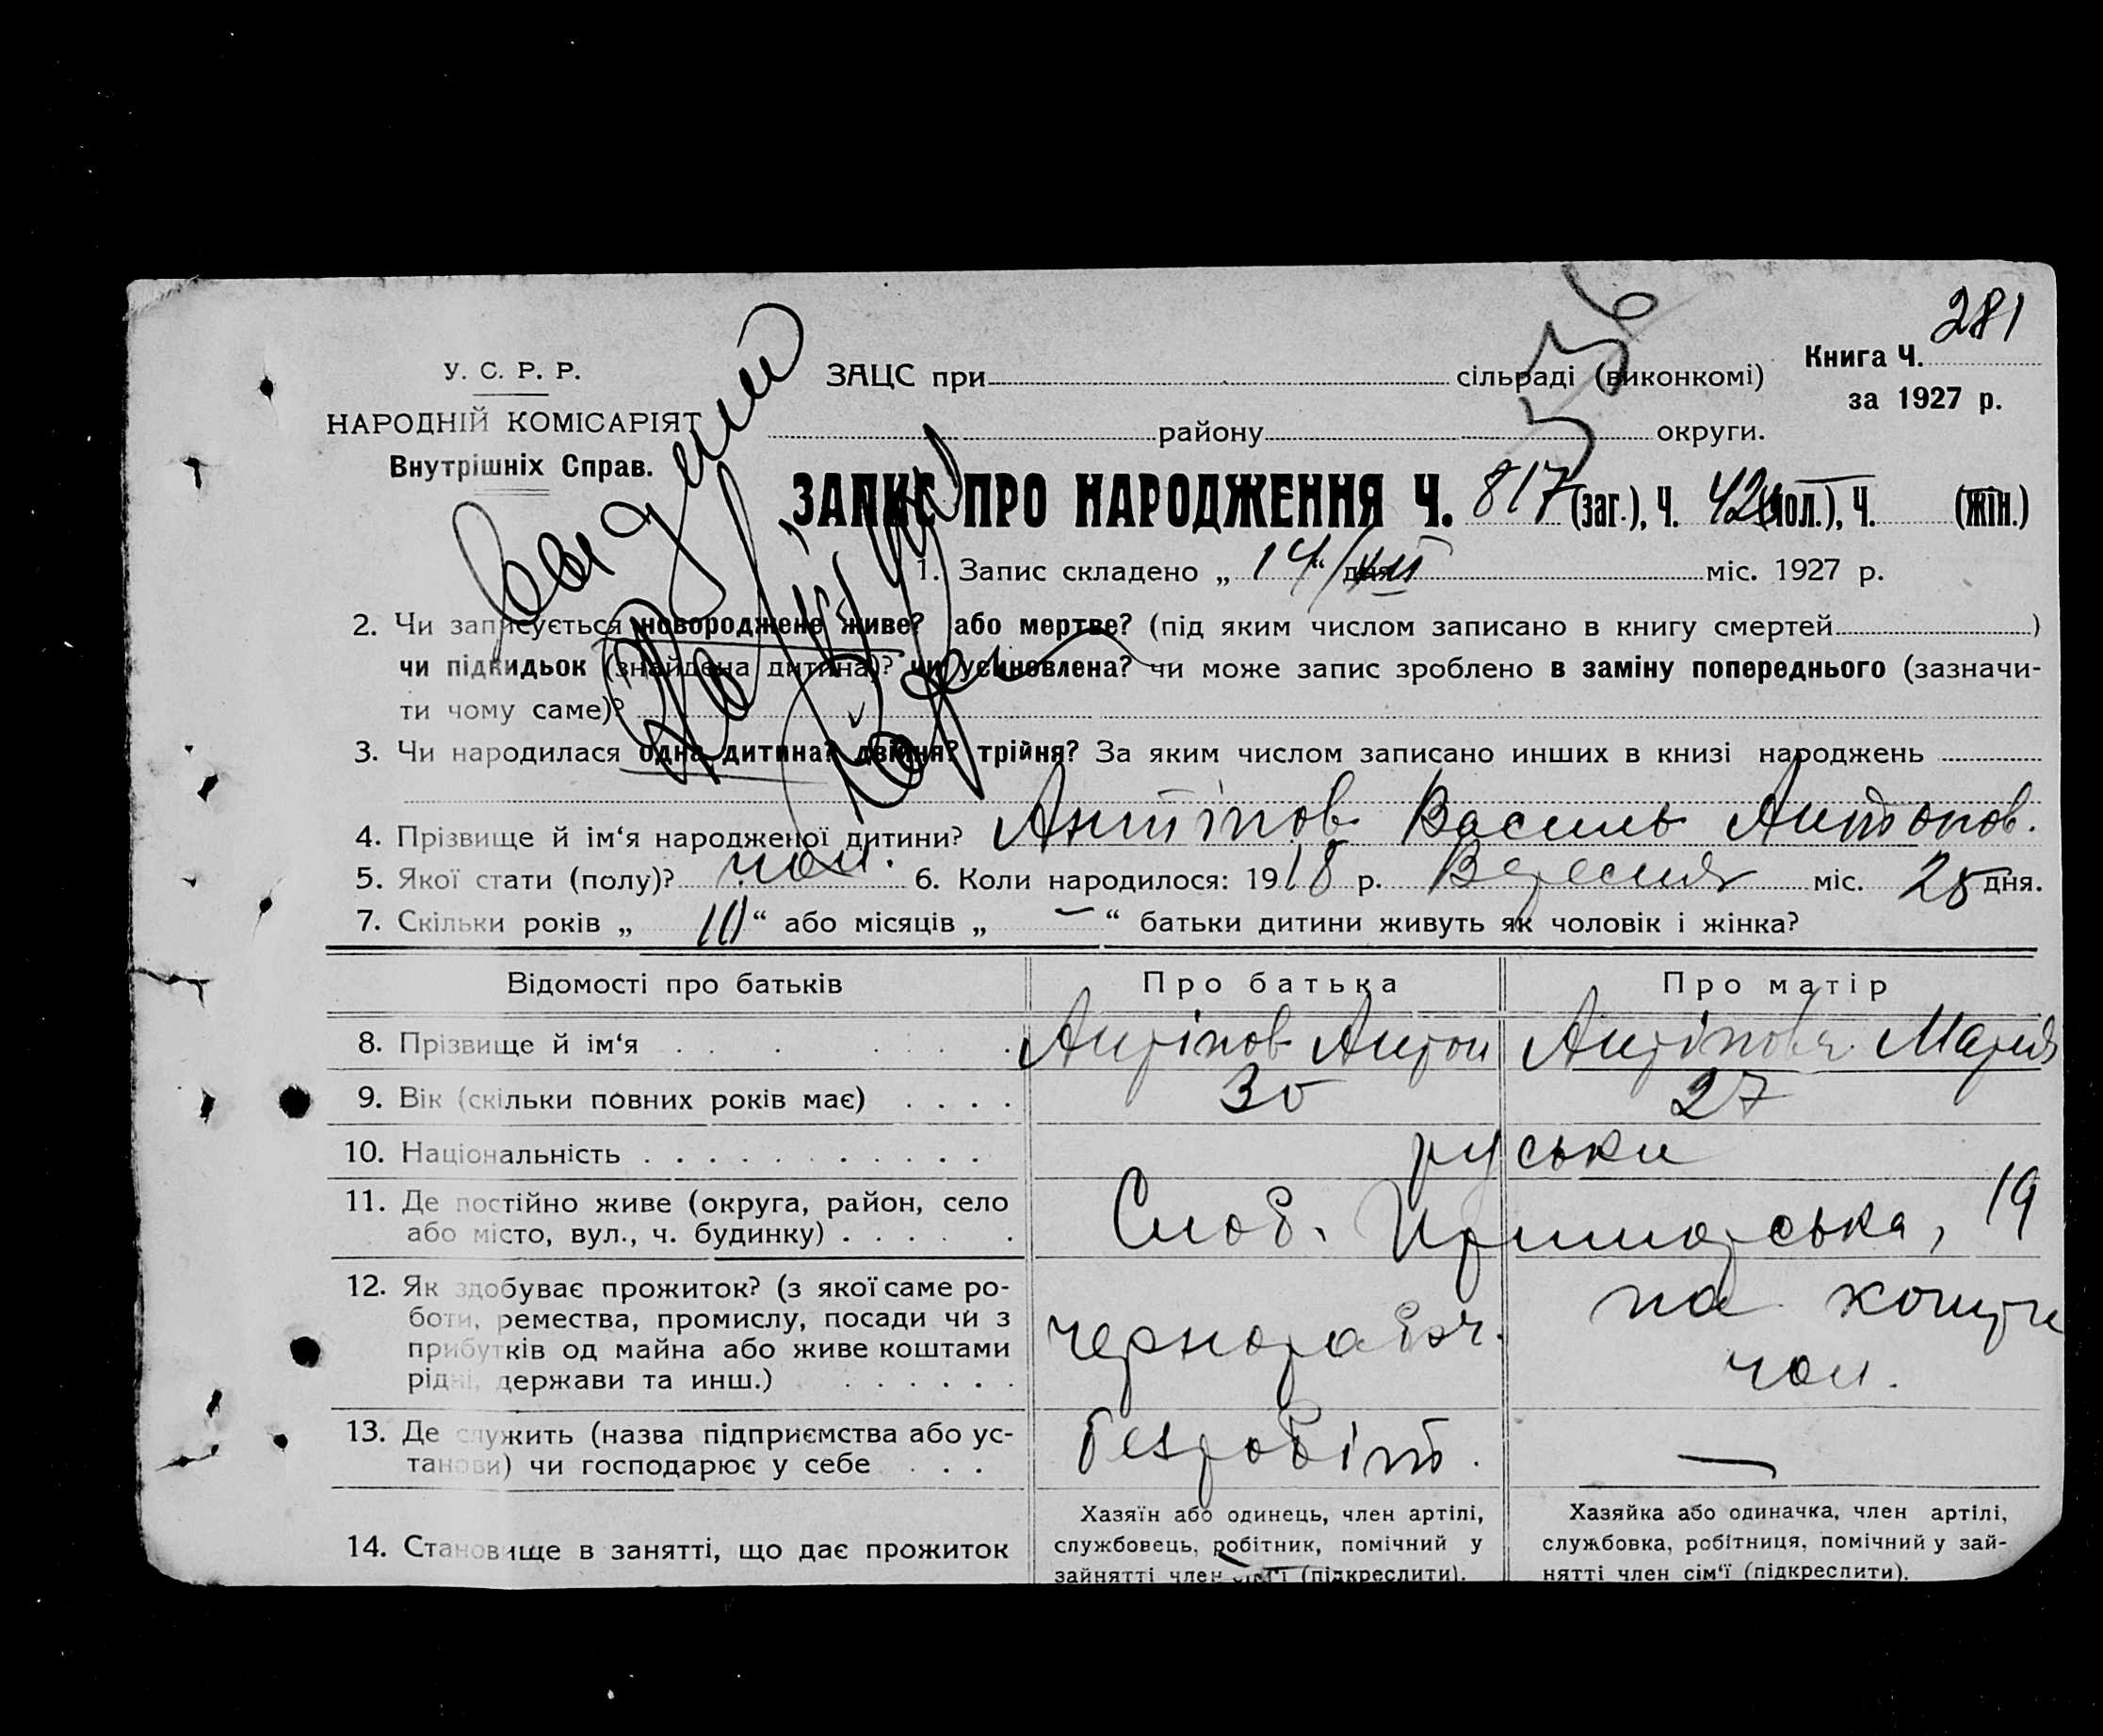 281
У. С. Р. Р.
НАРОДНІЙ КОМІСАРІЯТ
Внутрішніх Справ.
ЗАЦС при сільраді (виконкомі)
району округи.
Книга Ч.
за 1927 р.
ЗАПИС ПРО НАРОДЖЕННЯ Ч. 817 (заг.), Ч. 424 (чол.), Ч. (жін.)
1. Запис складено „ 14 “ дня міс. 1927 р.
2. Чи записується новороджене живе? або мертве? (під яким числом записано в книгу смертей )
чи підкидьок (знайдена дитина)? чи усиновлена? чи може запис зроблено в заміну попереднього (зазначи-
ти чому саме)?
3. Чи народилася одна дитина? двійня? трійня? За яким числом записано инших в книзі народжень
4. Прізвище й ім‘я народженої дитини? Антіпов Василь Антонов.
5. Якої стати (полу)? чол. 6. Коли народилося: 1918 р. Вересня міс. 25 дня.
7. Скільки років „ 10 “ або місяців „ — “ батьки дитини живуть як чоловік і жінка?
Відомості про батьків Про батька Про матір
8. Прізвище й ім‘я Антіпов Антон Антіпова Мария
9. Вік (скільки повних років має) 30 27
10. Національність руськи
11. Де постійно живе (округа, район, село
або місто, вул., ч. будинку) Слоб. Приморська, 19
12. Як здобуває прожиток? (з якої саме ро-
боти, ремества, промислу, посади чи з
прибутків од майна або живе коштами
рідні, держави та инш.)
чернорабоч.
на кошти
чол.
13. Де служить (назва підприємства або ус-
танови) чи господарює у себе
безробіт. —
14. Становище в занятті, що дає прожиток
Хазяїн або одинець, член артілі,
службовець, робітник, помічний у
зайнятті член сім‘ї (підкреслити).
Хазяйка або одиначка, член артілі,
службовка, робітниця, помічний у зай-
нятті член сім‘ї (підкреслити).